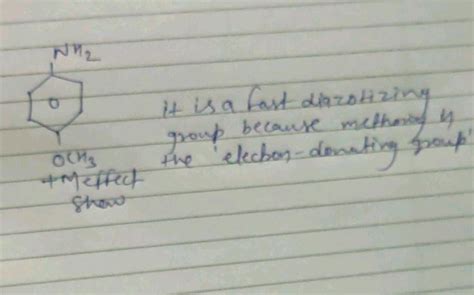 NH2
OCH3
+M effect
show
it is a fast diazotizing
group because methoxy is
the 'electron-donating group'